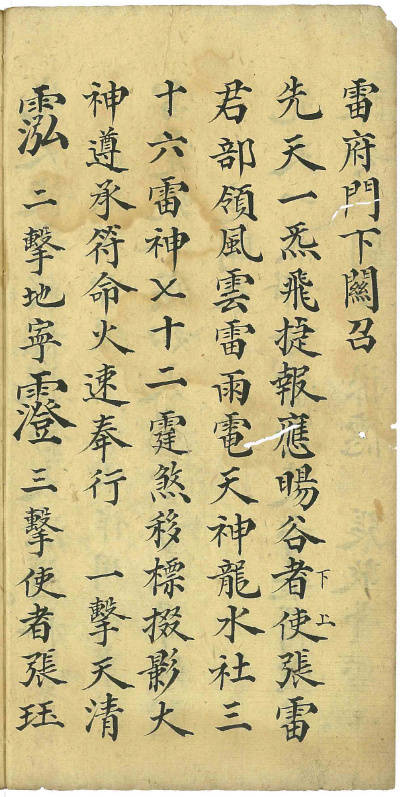 雷府門下關召
先天一炁飛捷報應暘谷者下使上張雷
君部領風雲雷雨電天神龍水社三
十六雷神㐅十二霆煞移標掇影大
神遵承符命火速奉行 一擊天清
二擊地寧 三擊使者張珏